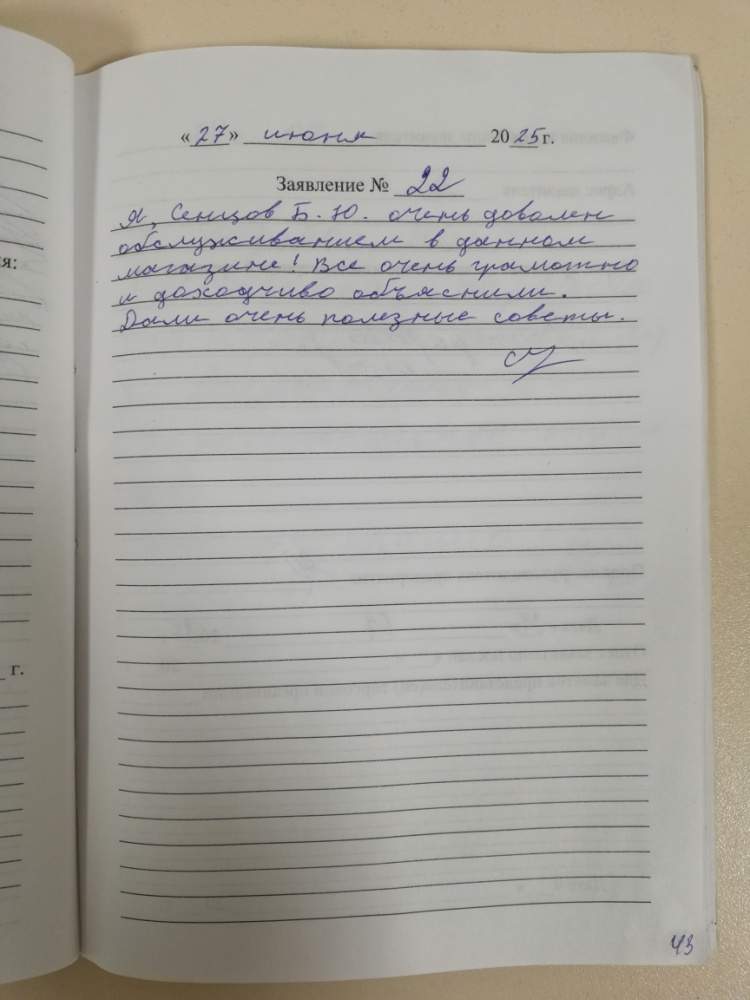 «27» июня 2025 г.
Заявление № 22
Я, Сенцов Б. Ю. очень доволен
обслуживанием в данном
магазине! Все очень грамотно
и доходчиво объяснили.
Дали очень полезные советы.
я:
г.
43